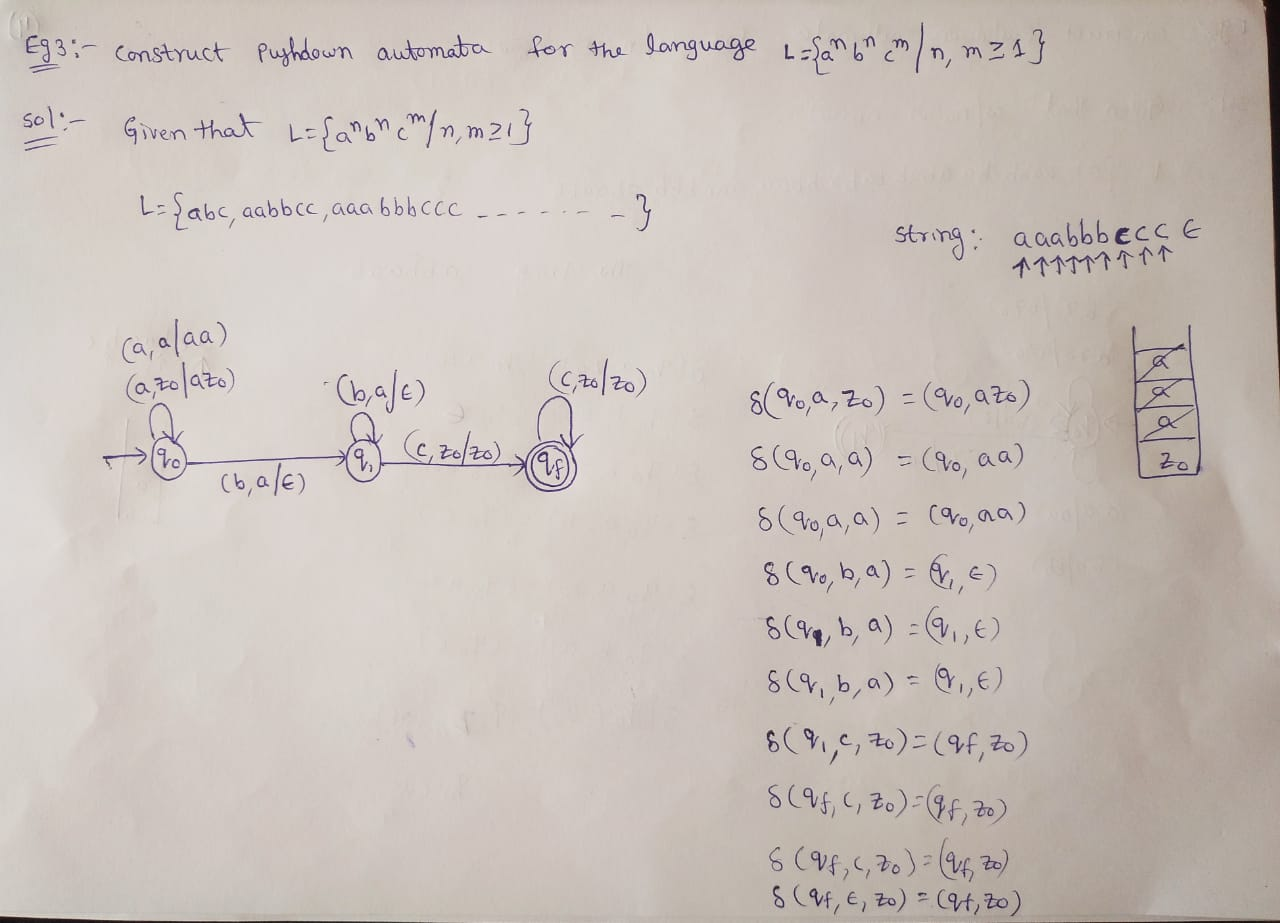 Eg3:- Construct Pushdown automata for the language L={aⁿbⁿcᵐ/n, m≥1}
Sol:- Given that L={aⁿbⁿcᵐ/n, m≥1}
L={abc, aabbcc, aaabbbccc - - - - - - - -}
String: aaabbbccc ϵ
↑↑↑↑↑↑↑↑↑
(a,a/aa)
(a,z₀/az₀)
(b,a/ϵ)
(c,z₀/z₀)
q₀
(b,a/ϵ)
q₁
(c,z₀/z₀)
qf
δ(q₀,a,z₀) = (q₀,az₀)
δ(q₀,a,a) = (q₀,aa)
δ(q₀,a,a) = (q₀,aa)
δ(q₀,b,a) = (q₁,ϵ)
δ(q₁,b,a) = (q₁,ϵ)
δ(q₁,b,a) = (q₁,ϵ)
δ(q₁,c,z₀)=(qf,z₀)
δ(qf,c,z₀)=(qf,z₀)
δ(qf,c,z₀)=(qf,z₀)
δ(qf,ϵ,z₀)=(qf,z₀)
a
a
a
z₀